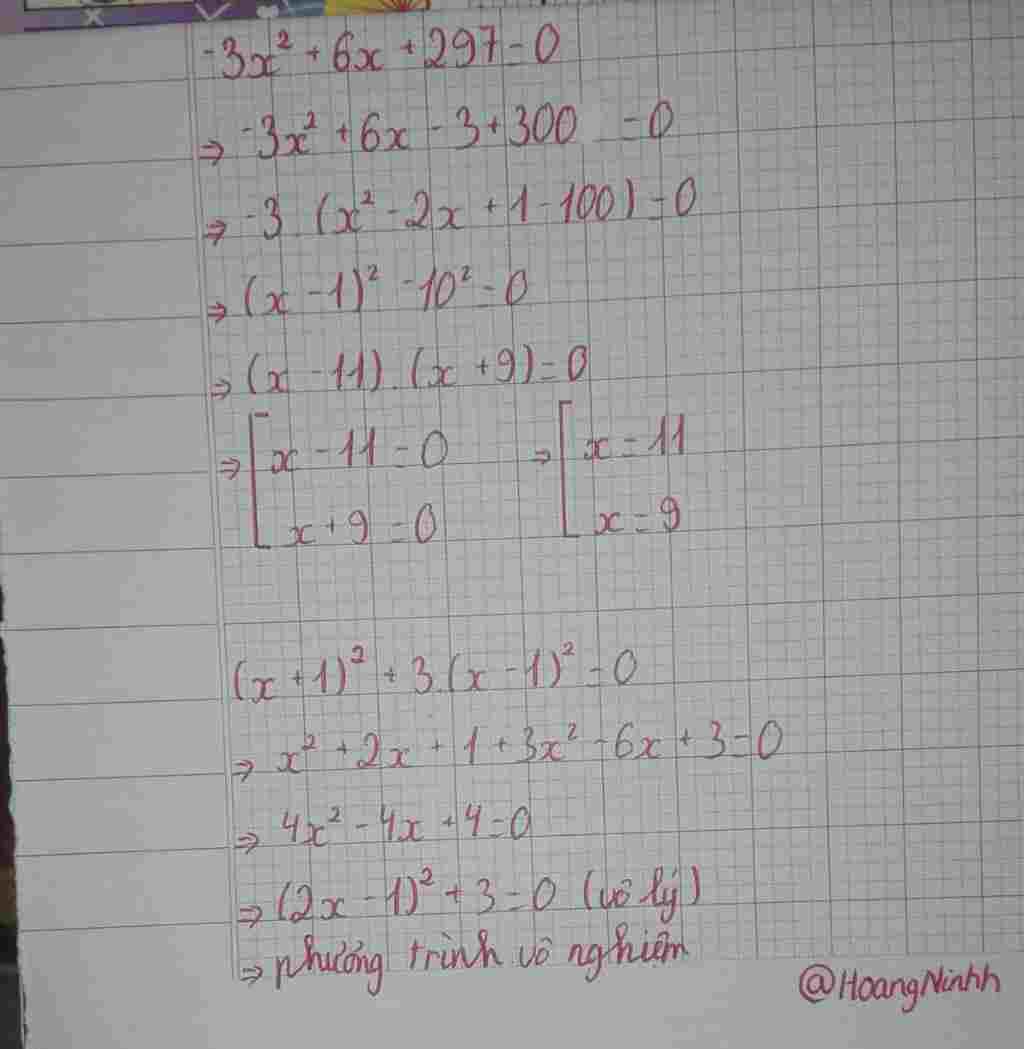 -3x² + 6x + 297 = 0
⇒ -3x² + 6x - 3 + 300 = 0
⇒ -3 (x² - 2x + 1 - 100) = 0
⇒ (x - 1)² - 10² = 0
⇒ (x - 11) . (x + 9) = 0
⇒ [ x - 11 = 0 ⇒ [ x = 11
x + 9 = 0 x = 9
(x + 1)² + 3.(x - 1)² = 0
⇒ x² + 2x + 1 + 3x² - 6x + 3 = 0
⇒ 4x² - 4x + 4 = 0
⇒ (2x - 1)² + 3 = 0 (vô lý)
⇒ phương trình vô nghiệm
@HoangNinhh